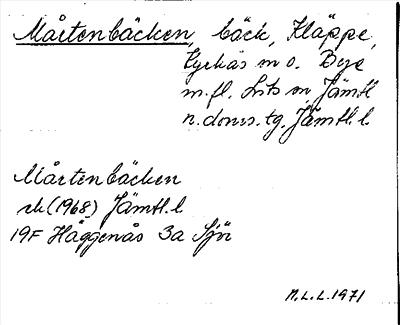 Mårtenbäcken, bäck, Kläppe,
Kyrkås m o. Bye
m.fl. Lits m Jämtl
n. doms. tg, Jämtl. l.
Mårtenbäcken
rk (1968) Jämtl. l
19F Häggenås 3a Sjör
M.L.L. 1971